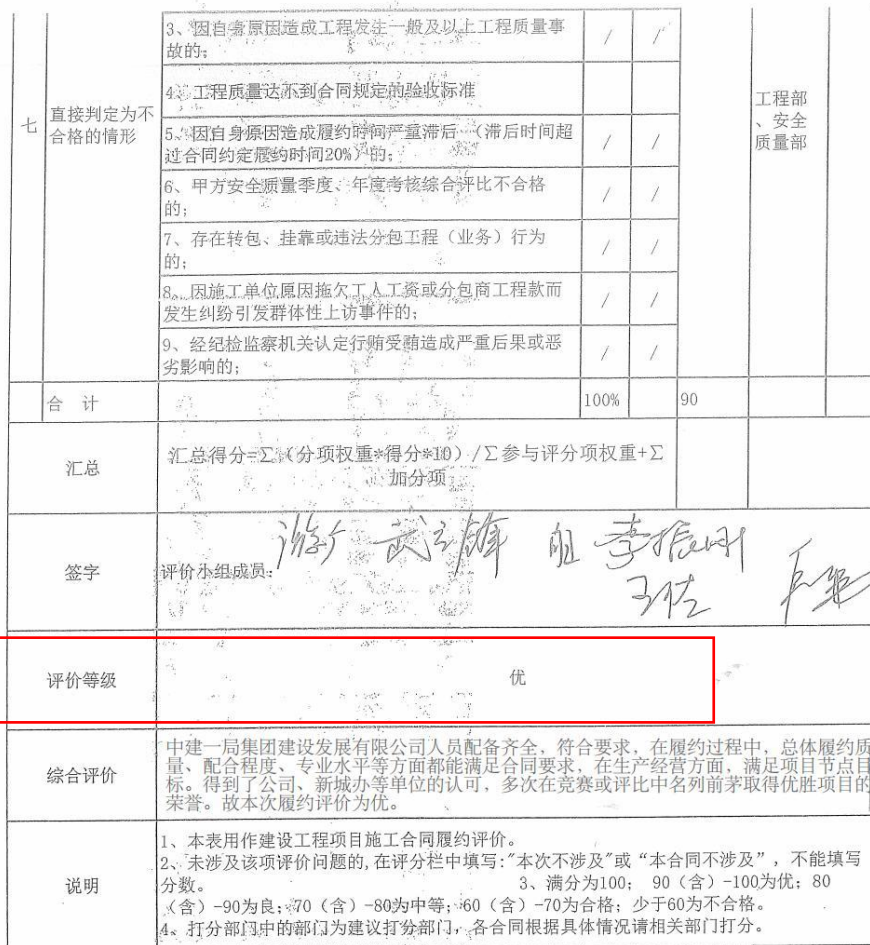 3、因自身原因造成工程发生一般及以上工程质量事
故的; / /
4、工程质量达不到合同规定的验收标准
七 直接判定为不
合格的情形
工程部
、安全
质量部
5、因自身原因造成履约时间严重滞后 (滞后时间超
过合同约定履约时间20%)的; / /
6、甲方安全质量季度、年度考核综合评比不合格
的; / /
7、存在转包、挂靠或违法分包工程(业务)行为
的; / /
8、因施工单位原因拖欠工人工资或分包商工程款而
发生纠纷引发群体性上访事件的; / /
9、经纪检监察机关认定行贿受贿造成严重后果或恶
劣影响的; / /
合 计 100% 90
汇总 汇总得分=∑(分项权重*得分*10)/∑参与评分项权重+∑
加分项
签字 评价小组成员: 李振刚
王佐
评价等级 优
综合评价
中建一局集团建设发展有限公司人员配备齐全，符合要求，在履约过程中，总体履约质
量、配合程度、专业水平等方面都能满足合同要求，在生产经营方面，满足项目节点目
标。得到了公司、新城办等单位的认可，多次在竞赛或评比中名列前茅取得优胜项目的
荣誉。故本次履约评价为优。
说明
1、本表用作建设工程项目施工合同履约评价。
2、未涉及该项评价问题的,在评分栏中填写:"本次不涉及"或“本合同不涉及”，不能填写
分数。 3、满分为100; 90(含)-100为优；80
(含)-90为良；70(含)-80为中等；60(含)-70为合格；少于60为不合格。
4、打分部门中的部门为建议打分部门，各合同根据具体情况请相关部门打分。